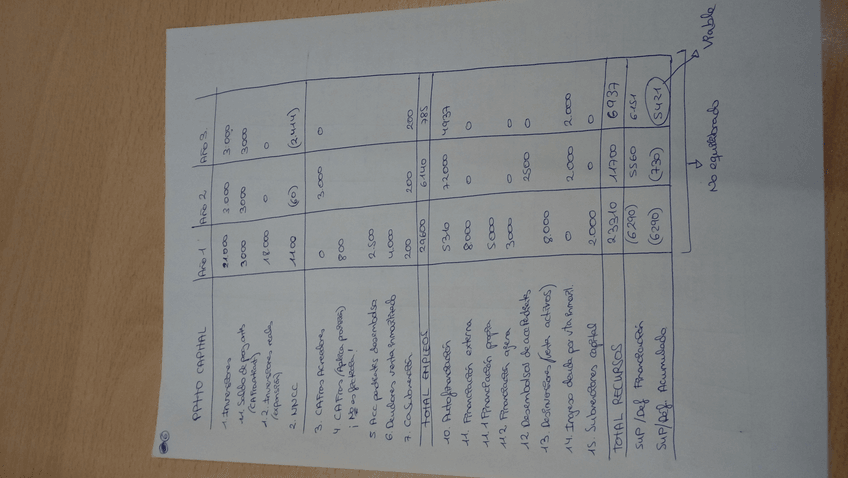 PPTO CAPITAL Año 1 Año 2 Año 3
1. Inversiones 21.000 3.000 3.000
1.1 Salidas de proy. ants 3000 3000 3000
1.2 Inversiones reales 18.000 0 0
(expansión)
2. NNCC 1100 (60) (2414)
3. CAFros Acreedores 0 3.000 0
4 CAFros / Aplica 800
5 Acc pendientes desembolso 2.500
6 Deudores venta inmovilizado 4.000
7. Ca Subvención 200 200 200
TOTAL EMPLEOS 29600 6140 785
10. Autofinanciación 5310 72000 4937
11. Financiación externa 8000 0 0
11.1 Financiación propia 5000
11.2 Financiación ajena 3000 0 0
12 Desembolsos de acc Pendients 2500 0
13. Desinversiones (venta activos) 8.000
14. Ingreso deuda por vta inmovil. 0 2.000 2.000
15. Subvenciones capital 2.000 0 0
TOTAL RECURSOS 23310 11700 6937
SUP / Def Financiación (6290) 5560 6151
Sup/Def. Acumulado (6290) (730) 5421
No equilibrado
Viable